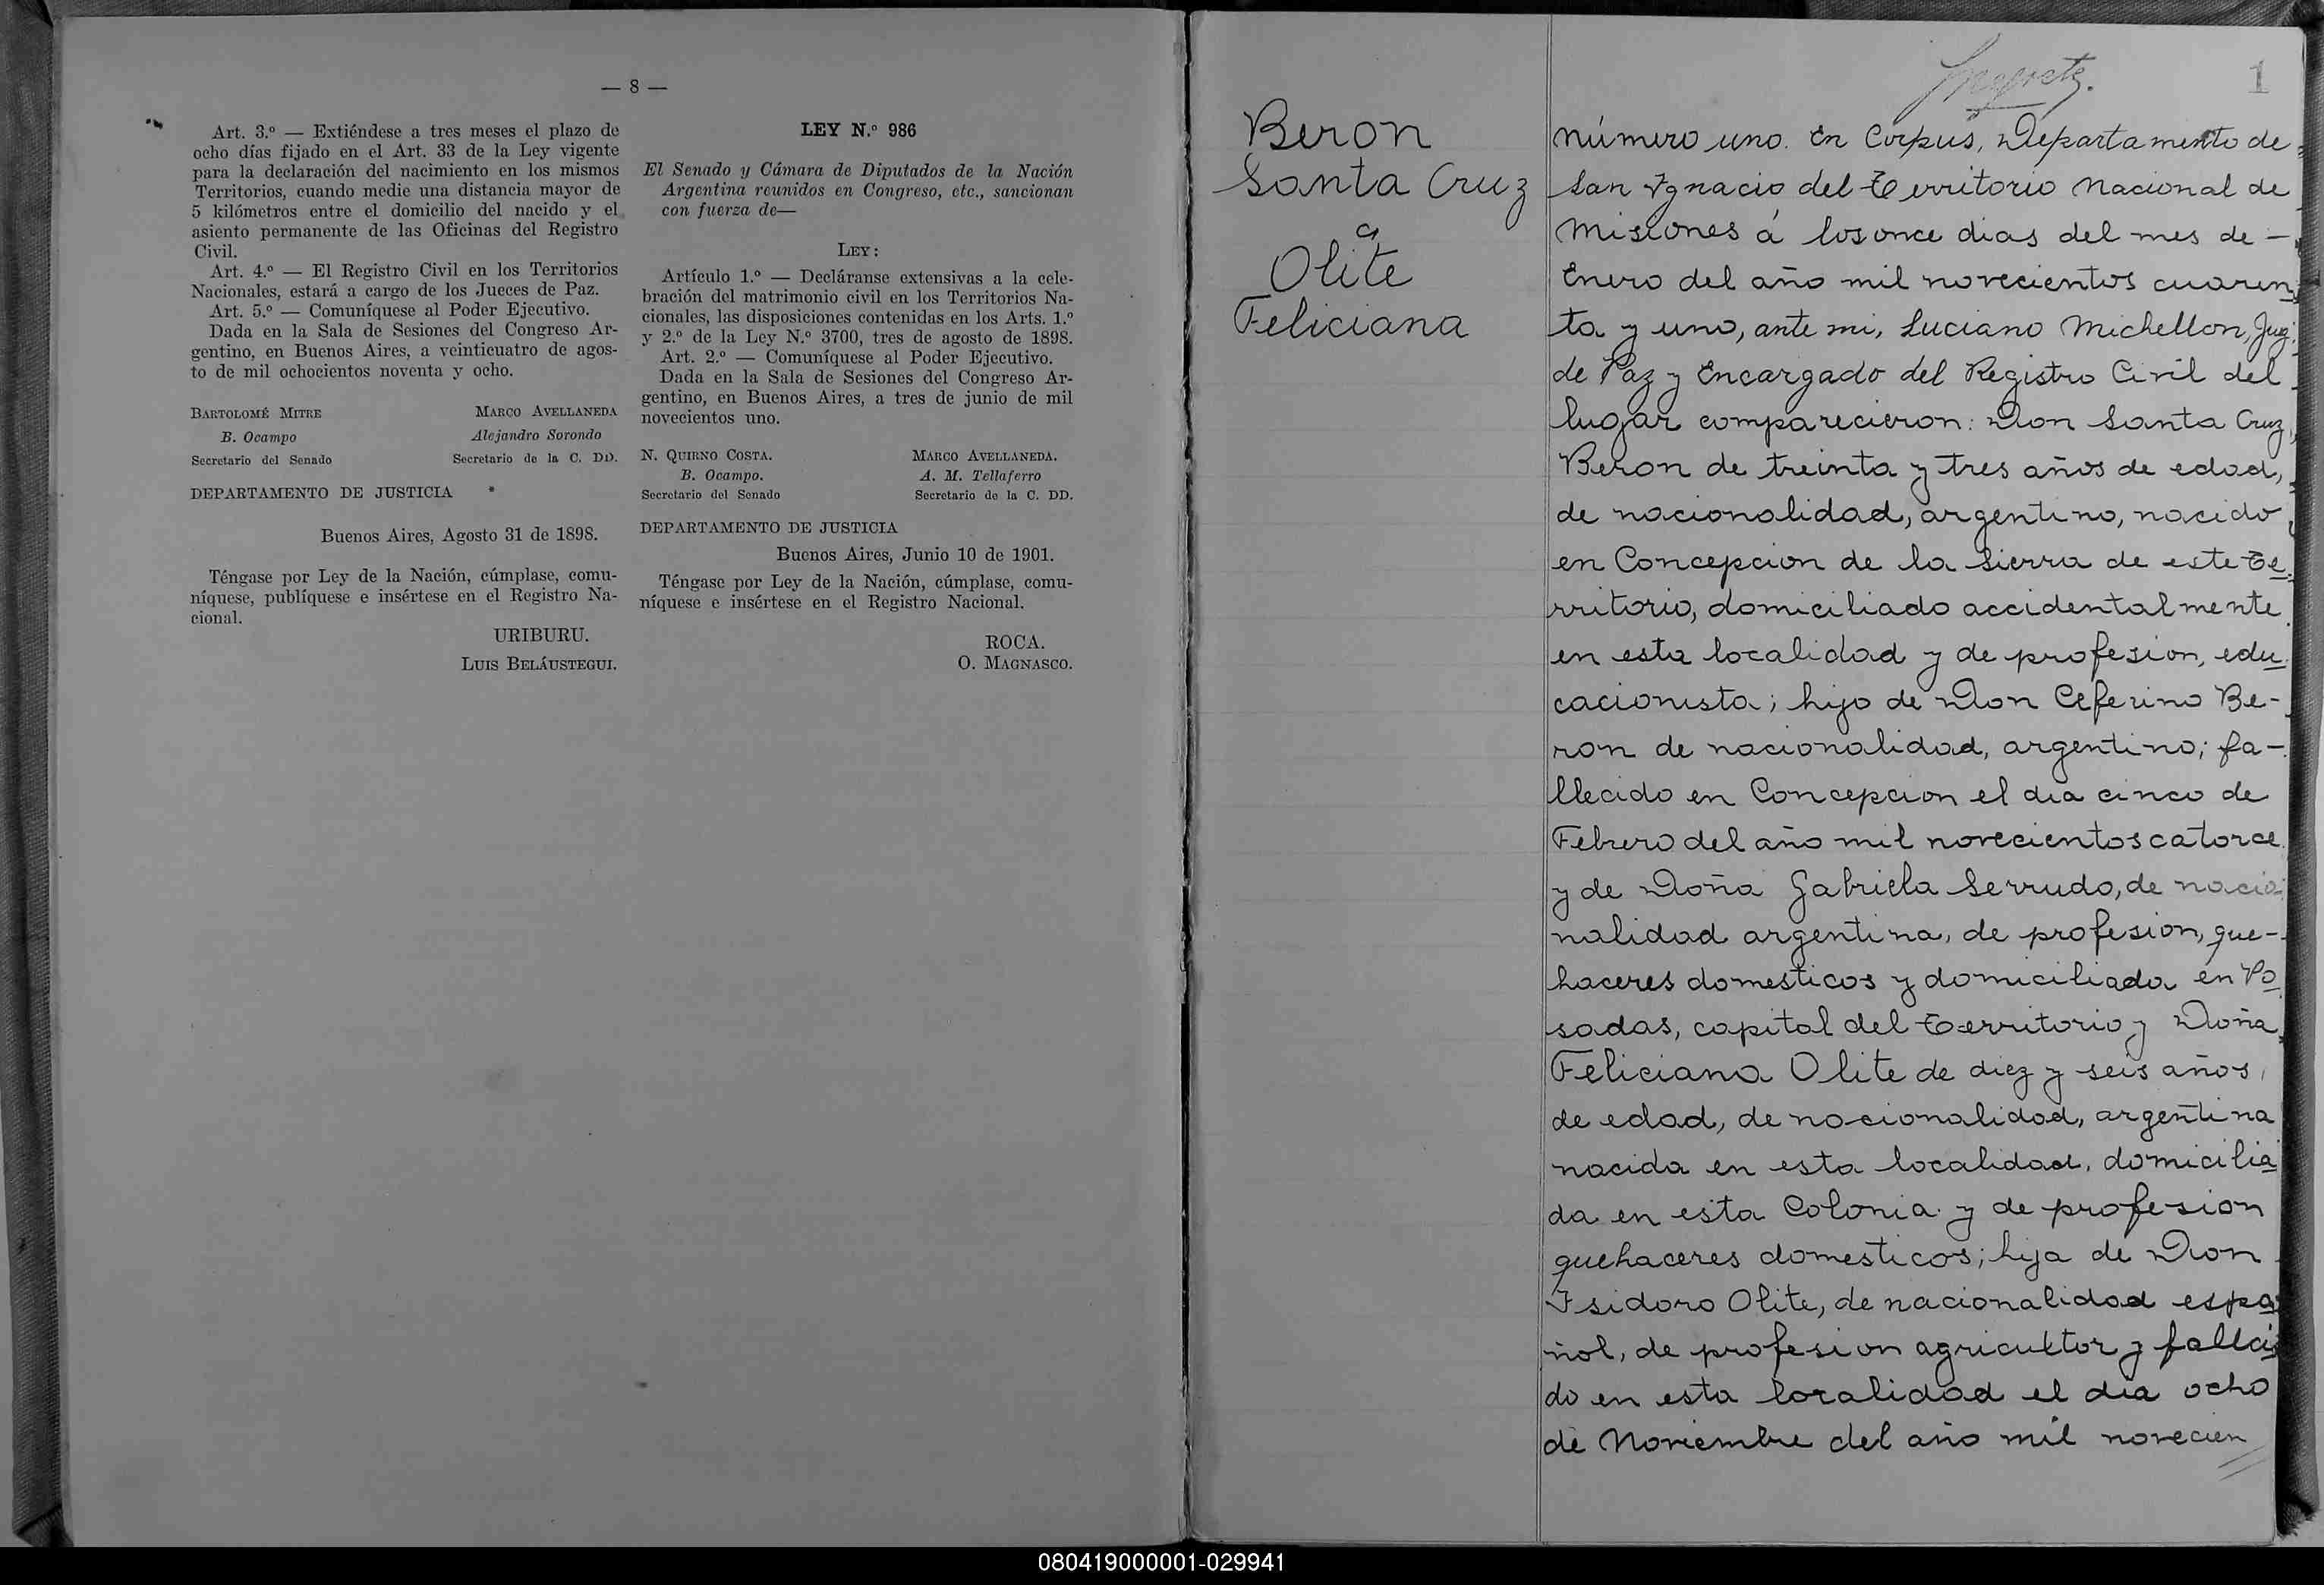 — 8 —
Art. 3.º — Extiéndese a tres meses el plazo de
ocho días fijado en el Art. 33 de la Ley vigente
para la declaración del nacimiento en los mismos
Territorios, cuando medie una distancia mayor de
5 kilómetros entre el domicilio del nacido y el
asiento permanente de las Oficinas del Registro
Civil.
Art. 4.º — El Registro Civil en los Territorios
Nacionales, estará a cargo de los Jueces de Paz.
Art. 5.º — Comuníquese al Poder Ejecutivo.
Dada en la Sala de Sesiones del Congreso Ar-
gentino, en Buenos Aires, a veinticuatro de agos-
to de mil ochocientos noventa y ocho.
BARTOLOMÉ MITRE MARCO AVELLANEDA
B. Ocampo Alejandro Sorondo
Secretario del Senado Secretario de la C. DD.
DEPARTAMENTO DE JUSTICIA
Buenos Aires, Agosto 31 de 1898.
Téngase por Ley de la Nación, cúmplase, comu-
níquese, publíquese e insértese en el Registro Na-
cional.
URIBURU.
LUIS BELÁUSTEGUI.
LEY N.º 986
El Senado y Cámara de Diputados de la Nación
Argentina reunidos en Congreso, etc., sancionan
con fuerza de—
LEY:
Artículo 1.º — Decláranse extensivas a la cele-
bración del matrimonio civil en los Territorios Na-
cionales, las disposiciones contenidas en los Arts. 1.º
y 2.º de la Ley N.º 3700, tres de agosto de 1898.
Art. 2.º — Comuníquese al Poder Ejecutivo.
Dada en la Sala de Sesiones del Congreso Ar-
gentino, en Buenos Aires, a tres de junio de mil
novecientos uno.
N. QUIRNO COSTA. MARCO AVELLANEDA.
B. Ocampo. A. M. Tellaferro
Secretario del Senado Secretario de la C. DD.
DEPARTAMENTO DE JUSTICIA
Buenos Aires, Junio 10 de 1901.
Téngase por Ley de la Nación, cúmplase, comu-
níquese e insértese en el Registro Nacional.
ROCA.
O. MAGNASCO.
1
Beron
Santa Cruz
a
Olite
Feliciana
Número uno. En Corpus, Departamento de
San Ygnacio del Territorio Nacional de
Misiones á los once dias del mes de —
Enero del año mil novecientos cuaren
ta y uno, ante mi, Luciano Michellon, Juez
de Paz y Encargado del Registro Civil del
lugar comparecieron: Don Santa Cruz
Beron de treinta y tres años de edad,
de nacionalidad, argentino, nacido
en Concepcion de la Sierra de este Te
rritorio, domiciliado accidentalmente
en esta localidad y de profesion, edu
cacionista; hijo de Don Ceferino Be-
ron de nacionalidad, argentino; fa-
llecido en Concepcion el dia cinco de
Febrero del año mil novecientos catorce
y de Doña Gabriela Serrudo, de nacio
nalidad argentina, de profesion, que-
haceres domesticos y domiciliada en Po
sadas, capital del Territorio y Doña
Feliciana Olite de diez y seis años,
de edad, de nacionalidad, argentina
nacida en esta localidad, domicilia
da en esta Colonia y de profesion
quehaceres domesticos; hija de Don
Isidoro Olite, de nacionalidad espa
ñol, de profesion agricultor y falleci
do en esta localidad el dia ocho
de Noviembre del año mil novecien
080419000001-029941